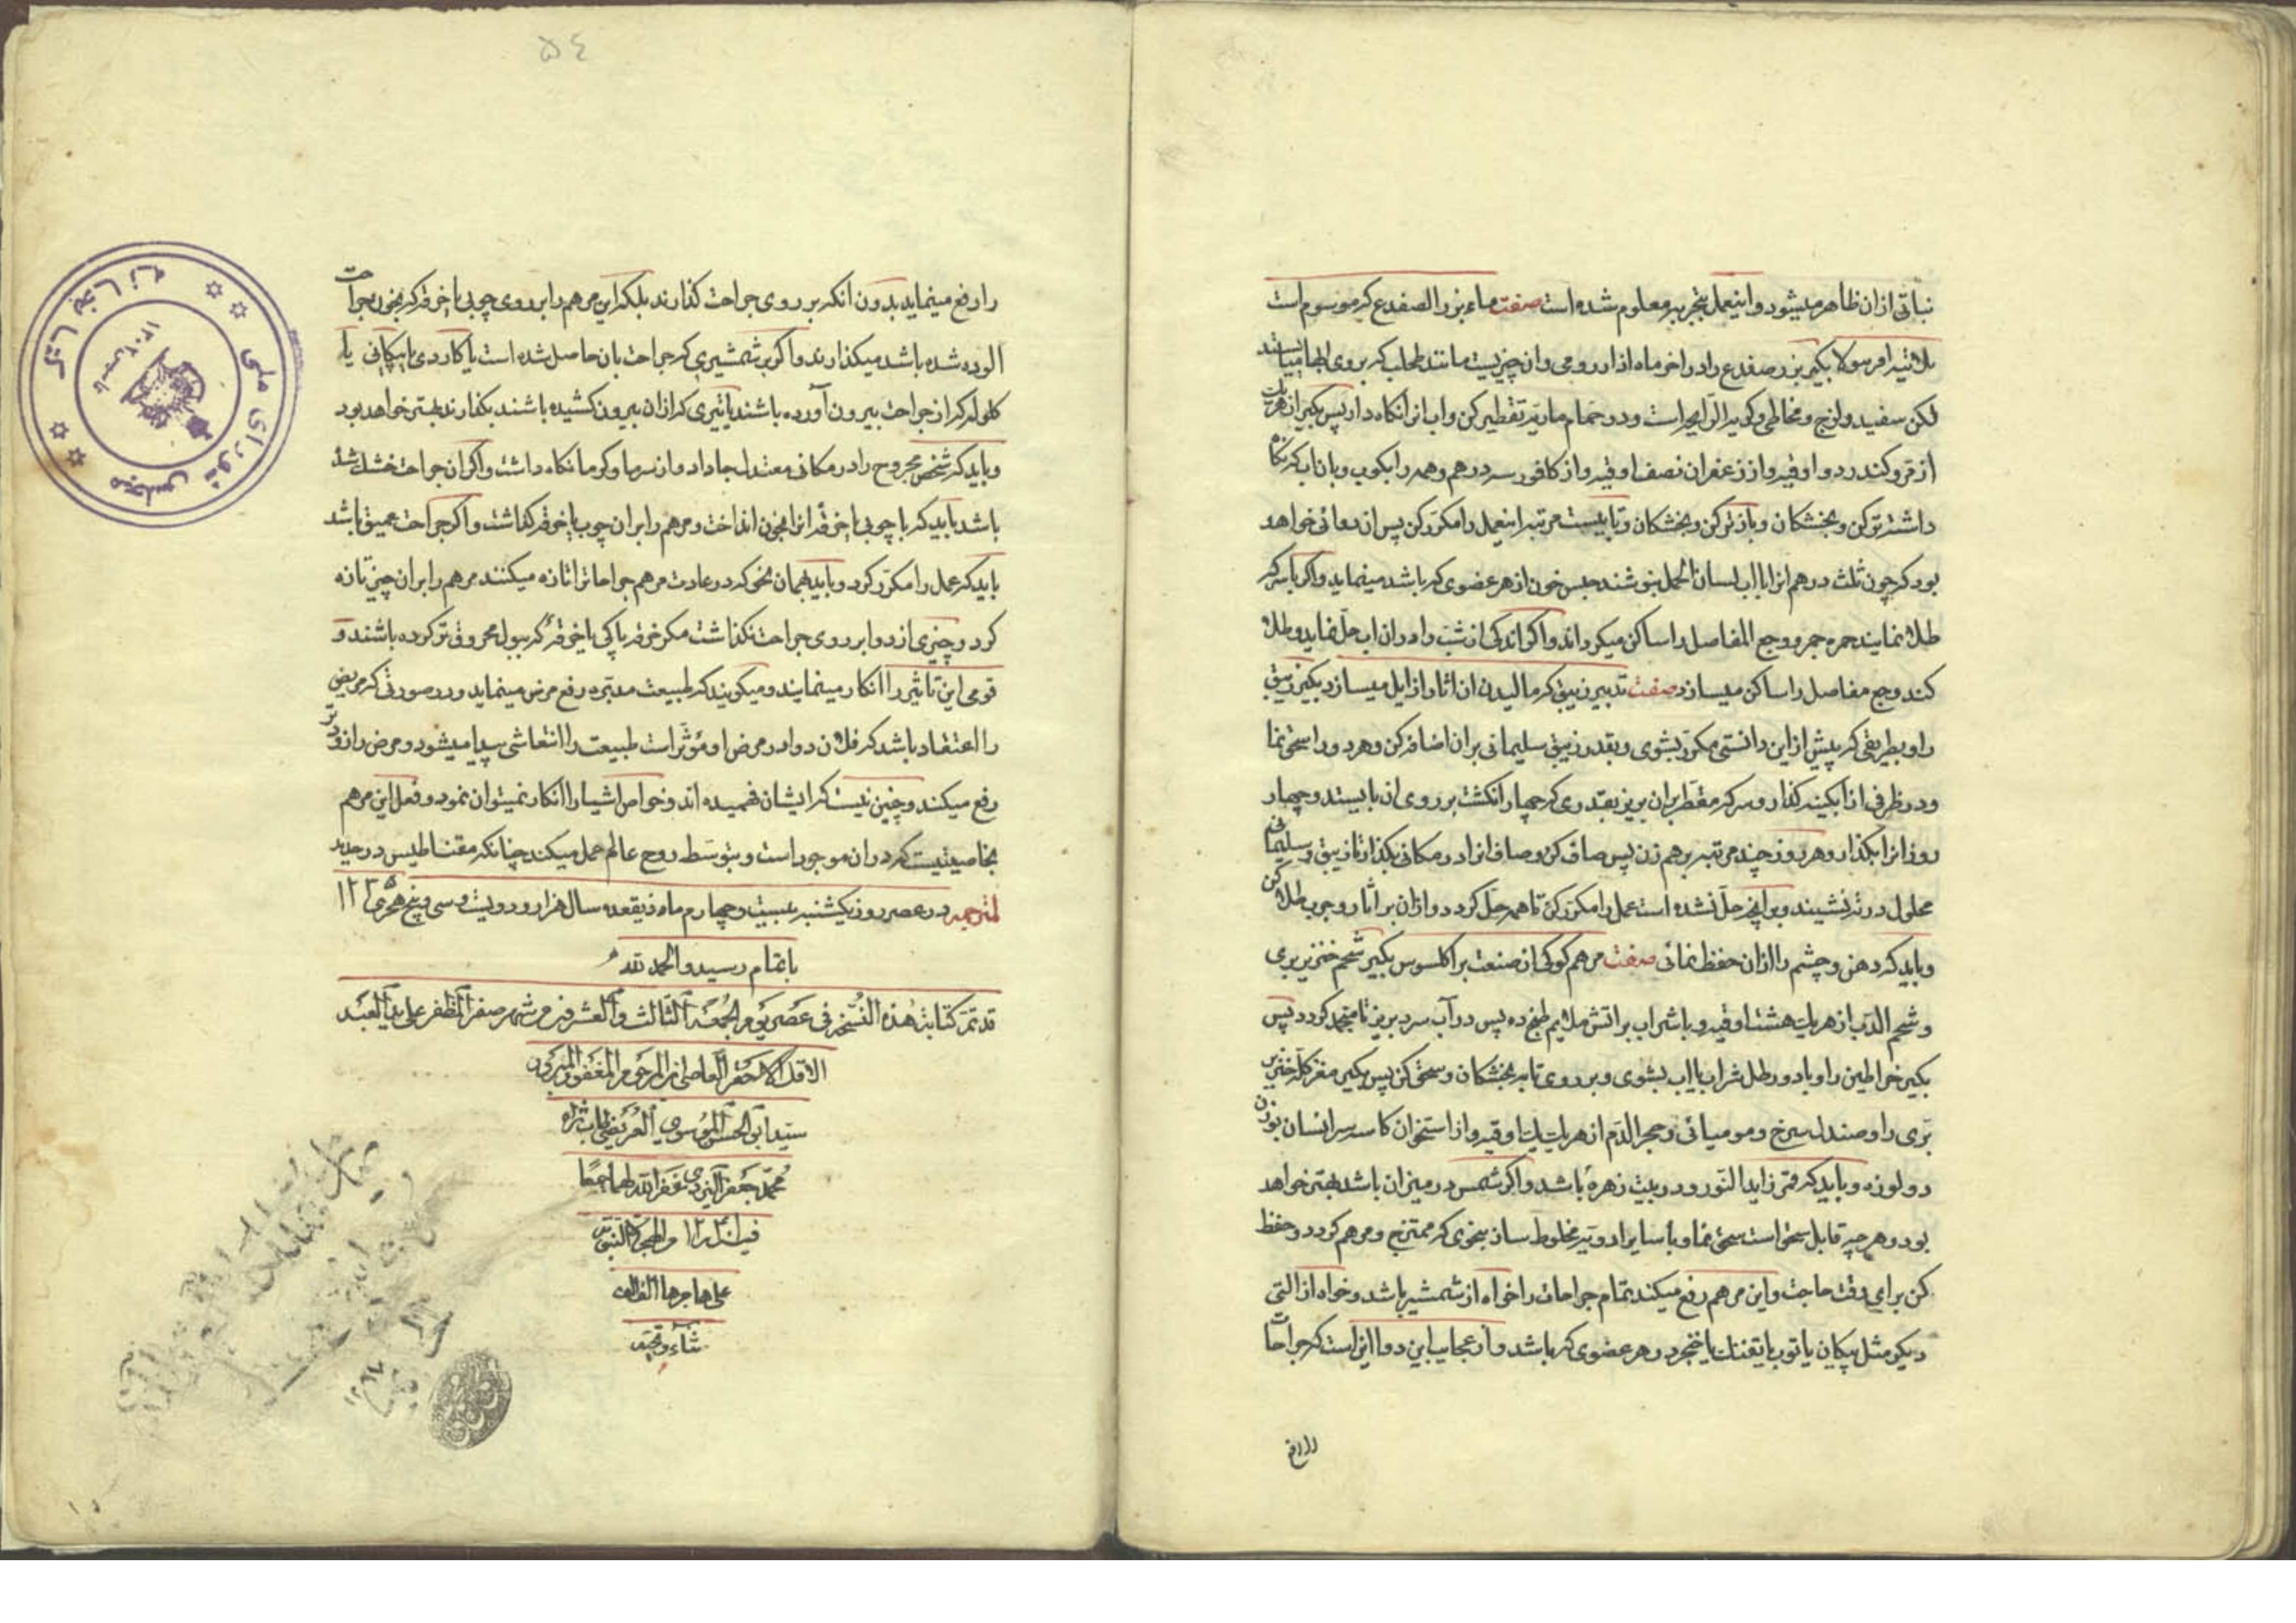 نباتی ازان ظاهر میشود و اینعمل بتجربه معلوم شده است صفت ماء بزر الصفدع که موسوم است
بکیر بزر صفدع را در اخر ماه اذار رومی و ان چیزیست مانند طحلب که بر روی ابها میباشد
لکن سفید و لزج و مخاطی و کریه الرایحه است و در حمام ماریه تقطیر کن و اب انرا نکاه دار پس بکیر از هریک
از مر و کندر دو اوقیه و از زعفران نصف اوقیه و از کافور سه درهم و همه را بکوب و بان اب که نکاه
داشته تر کن و بخشکان و باز تر کن و بخشکان و تا بیست مرتبه اینعمل را مکرر کن پس ان دوائی خواهد
بود که چون ثلث درهم انرا با اب لسان الحمل بنوشند حبس خون از هر عضوی که باشد مینماید و اکر با سرکه
طلا نمایند حمره و وجع المفاصل را ساکن میکرداند و اکر اندکی از شب را در ان اب حل نماید و طلا
کند وجع مفاصل را ساکن میسازد صفت تدبیر زیبق که مالیدن ان اثار را زایل میسازد بکیر زیبق
را و بطریقی که پیش از این دانستی مکرر بشوی و بقدر زیبق سلیمانی بران اضافه کن و هر دو را سحق نما
و در ظرفی از ابکینه کذار و سرکه مقطر بران بریز بقدری که چهار انکشت بر روی ان بایستد و چهار
روز انرا بکذار و هر روز چند مرتبه برهم زن پس صاف کن و صاف انرا در مکانی بکذار تا زیبق و سلیمانی
محلول در ته نشیند و هر انچه حل نشده است عمل را مکرر کن تا همه حل کردد و ازان بر اثار و جرب طلا کن
و باید که دهن و چشم را ازان حفظ نمائی صفت مرهم کوکبی از صنعت براکلسوس بکیر شحم خنزیر بری
و شحم الدب از هریک هشت اوقیه و با شراب بر اتش ملایم طبخ ده پس در آب سرد بریز تا منجمد کردد پس
بکیر خراطین را و با دو رطل شراب یا اب بشوی و بر روی تابه بخشکان و سحق کن پس بکیر مغز کله خنزیر
بری را و صندل سرخ و مومیائی و حجر الدم از هریک یک اوقیه و از استخوان کاسه سر انسان بوزن
دو لوزه و باید که قمر زاید النور و در بیت زهره باشد و اکر شمس در میزان باشد بهتر خواهد
بود و هر چه قابل سحق است سحق نما و با سایر ادویه مخلوط ساز بنحوی که ممتزج و مرهم کردد و حفظ
کن برای وقت حاجت و این مرهم رفع میکند تمام جراحات را خواه از شمشیر باشد و خواه از التی
دیکر مثل پیکان یا توپ یا تفنک یا خنجر در هر عضوی که باشد و از عجایب این دوا اینست که جراحات
را رفع
۵٤
را رفع مینماید بدون انکه بر روی جراحت کذارند بلکه این مرهم را بر روی چوبی یا خرقه که بخون جراحت
الوده شده باشد میکذارند و اکر بر شمشیری که جراحت بان حاصل شده است یا کاردی یا پیکانی یا
کلوله که از جراحت بیرون آورده باشند یا تیری که ازان بیرون کشیده باشند بکذارند بهتر خواهد بود
و باید که شخص مجروح را در مکانی معتدل جا داد و از سرما و کرما نکاه داشت و اکر ان جراحت خشک شده
باشد باید که با چوبی یا خرقه انرا بخون انداخت و مرهم را بران چوب یا خرقه کذاشت و اکر جراحت عمیق باشد
باید که عمل را مکرر کرد و باید بهمان نحو که در عادت مرهم جراحاترا تازه میکنند مرهم را بران چیز تازه
کرد و چیزی از دوا بر روی جراحت نکذاشت مکر خرقه پاکی یا خرقه که ببول محروق تر کرده باشند و
قومی این تاثیر را انکار مینمایند و میکویند که طبیعت مدبره رفع مرض مینماید و در صورتی که مریض
را اعتقاد باشد که فلان دوا در مرض او مؤثر است طبیعت را انتعاشی پیدا میشود و مرض را زودتر
رفع میکند و چنین نیست که ایشان فهمیده اند و خواص اشیا را انکار نمیتوان نمود و فعل این مرهم
بخاصیتیست که در ان موجود است و بتوسط روح عالم عمل میکند چنانکه مقناطیس در حدید
لمترجمه در عصر روز یکشنبه بیست و چهارم ماه ذیقعده سال هزار و دویست و سی و پنج هجری ۱۲۳۵
باتمام رسید و الحمد لله
قد تمت کتابة هذه النسخه فی عصر یوم الجمعه الثالث و العشر من شهر صفر المظفر علی ید العبد
الاقل الاحقر العاصی ابن المرحوم المغفور المبرور
سید ابو الحسن الموسوی العریضی طاب ثراه
محمد جعفر الیزدی غفر الله لهما جمیعا
من الهجرة النبویه
علی هاجرها الف الف
ثناء و تحیه
کتابخانه
مجلس شورای ملی